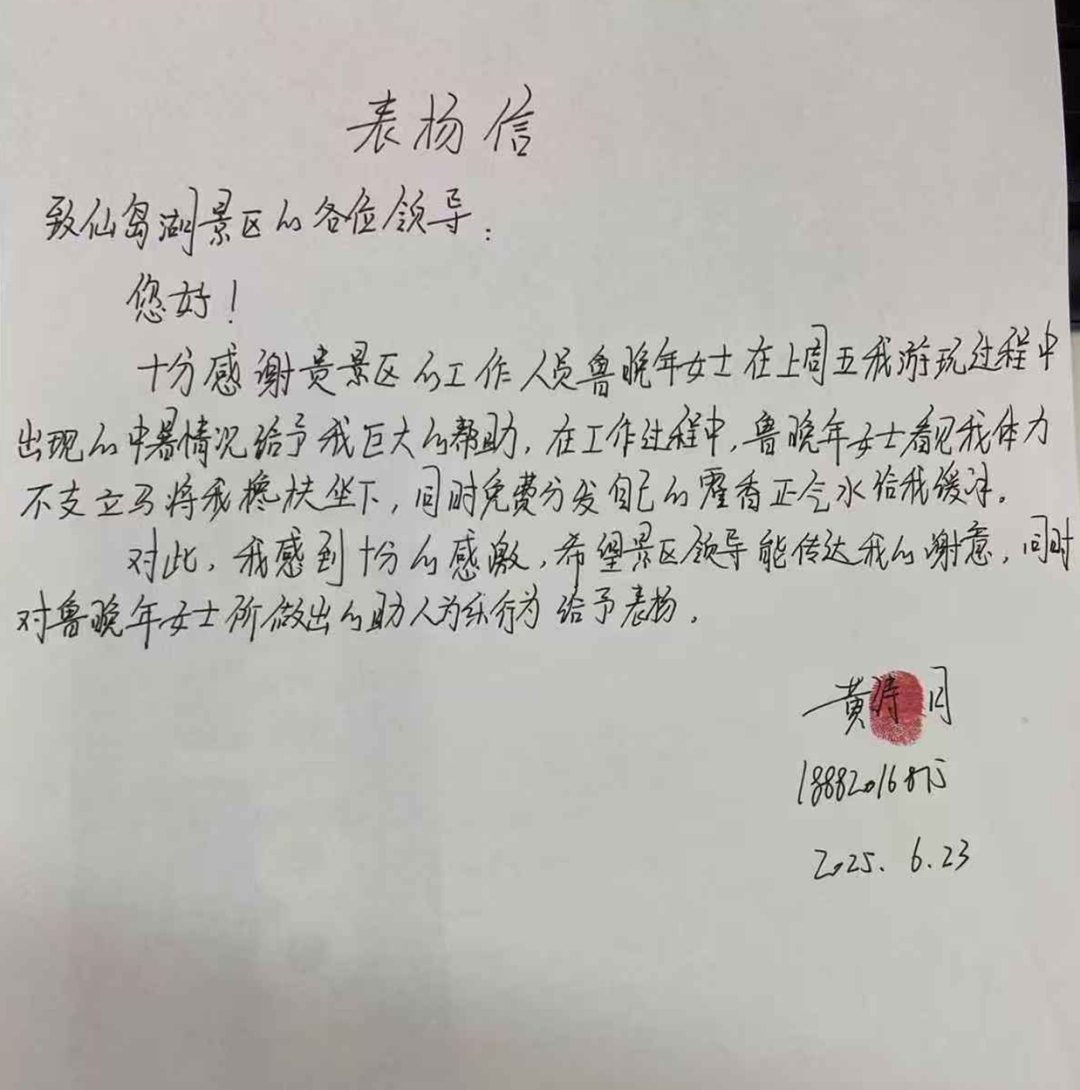 表扬信
致仙岛湖景区的各位领导:
您好!
十分感谢贵景区的工作人员鲁晚年女士在上周五我游玩过程中
出现的中暑情况给予我巨大的帮助,在工作过程中,鲁晚年女士看见我体力
不支立马将我搀扶坐下,同时免费分发自己的霍香正气水给我缓解。
对此,我感到十分的感激,希望景区领导能传达我的谢意,同时
对鲁晚年女士所做出的助人为乐行为给予表扬。
黄
2025.6.23